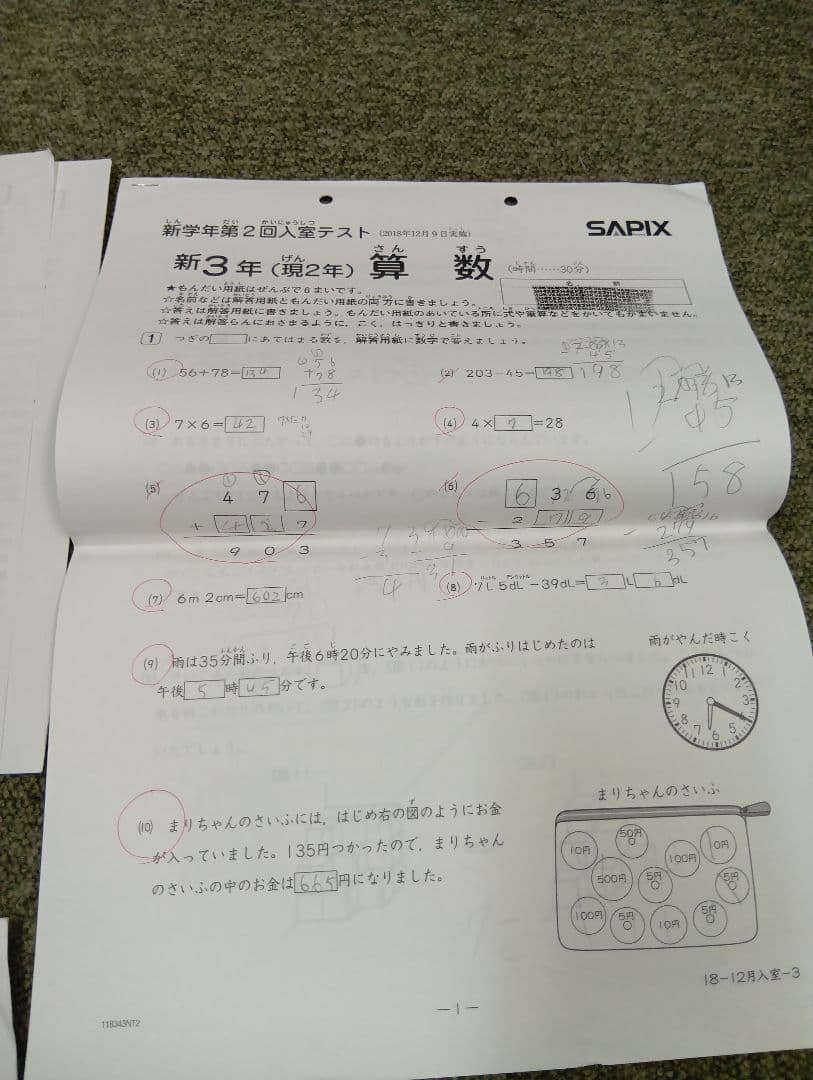 新学年第2回入室テスト (2018年12月9日実施)
SAPIX
新3年(現2年) 算数 (時間……30分)
★もんだい用紙はぜんぶで6まいです。
☆名前などは解答用紙ともんだい用紙の両方に書きましょう。
☆答えは解答用紙に書きましょう。もんだい用紙のあいている所に式や筆算などをかいてもかまいません。
☆答えは解答らんにおさまるように,こく,はっきりと書きましょう。
名 前
1 つぎの□にあてはまる数を,解答用紙に数字で答えましょう。
(1) 56+78=134
56
+78
134
(2) 203-45=198
198
45
158
(3) 7×6=42
(4) 4×7=28
(5) 476
+ 7
903
(6) 636
- 279
357
279
357
(7) 6m 2cm=602cm
(8) 7L 5dL-39dL=3L 6dL
(9) 雨は35分間ふり,午後6時20分にやみました。雨がふりはじめたのは
午後5時45分です。
雨がやんだ時こく
12 1 2 3 4 5 6 7 8 9 10 11
(10) まりちゃんのさいふには,はじめ右の図のようにお金
が入っていました。135円つかったので,まりちゃん
のさいふの中のお金は665円になりました。
まりちゃんのさいふ
10円 50円 100円 10円
500円 5円 5円
100円 5円 10円 5円
18-12月入室-3
-1-
118343NT2